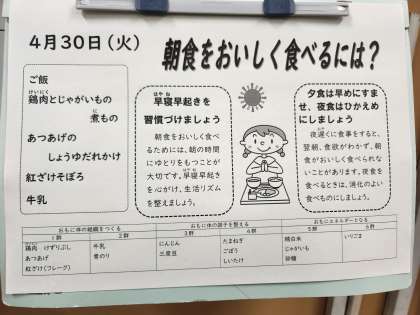 4月30日(火)
朝食をおいしく食べるには?
ご飯
鶏肉とじゃがいもの
煮もの
あつあげの
しょうゆだれかけ
紅ざけそぼろ
牛乳
早寝早起きを
習慣づけましょう
朝食をおいしく食べ
るためには、朝の時間
にゆとりをもつことが
大切です。早寝早起き
を心がけ、生活リズム
を整えましょう。
夕食は早めにすま
せ、夜食はひかえめ
にしましょう
夜遅くに食事をすると、
翌朝、食欲がわかず、朝
食がおいしく食べられな
いことがあります。夜食を
食べるときは、消化のよい
食べものにしましょう。
おもに体の組織をつくる
おもに体の調子を整える
おもにエネルギーとなる
1群 2群 3群 4群 5群 6群
鶏肉 けずりぶし
あつあげ
紅ざけ(フレーク)
牛乳
煮のり
にんじん
三度豆
たまねぎ
ごぼう
しいたけ
精白米
じゃがいも
砂糖
いりごま